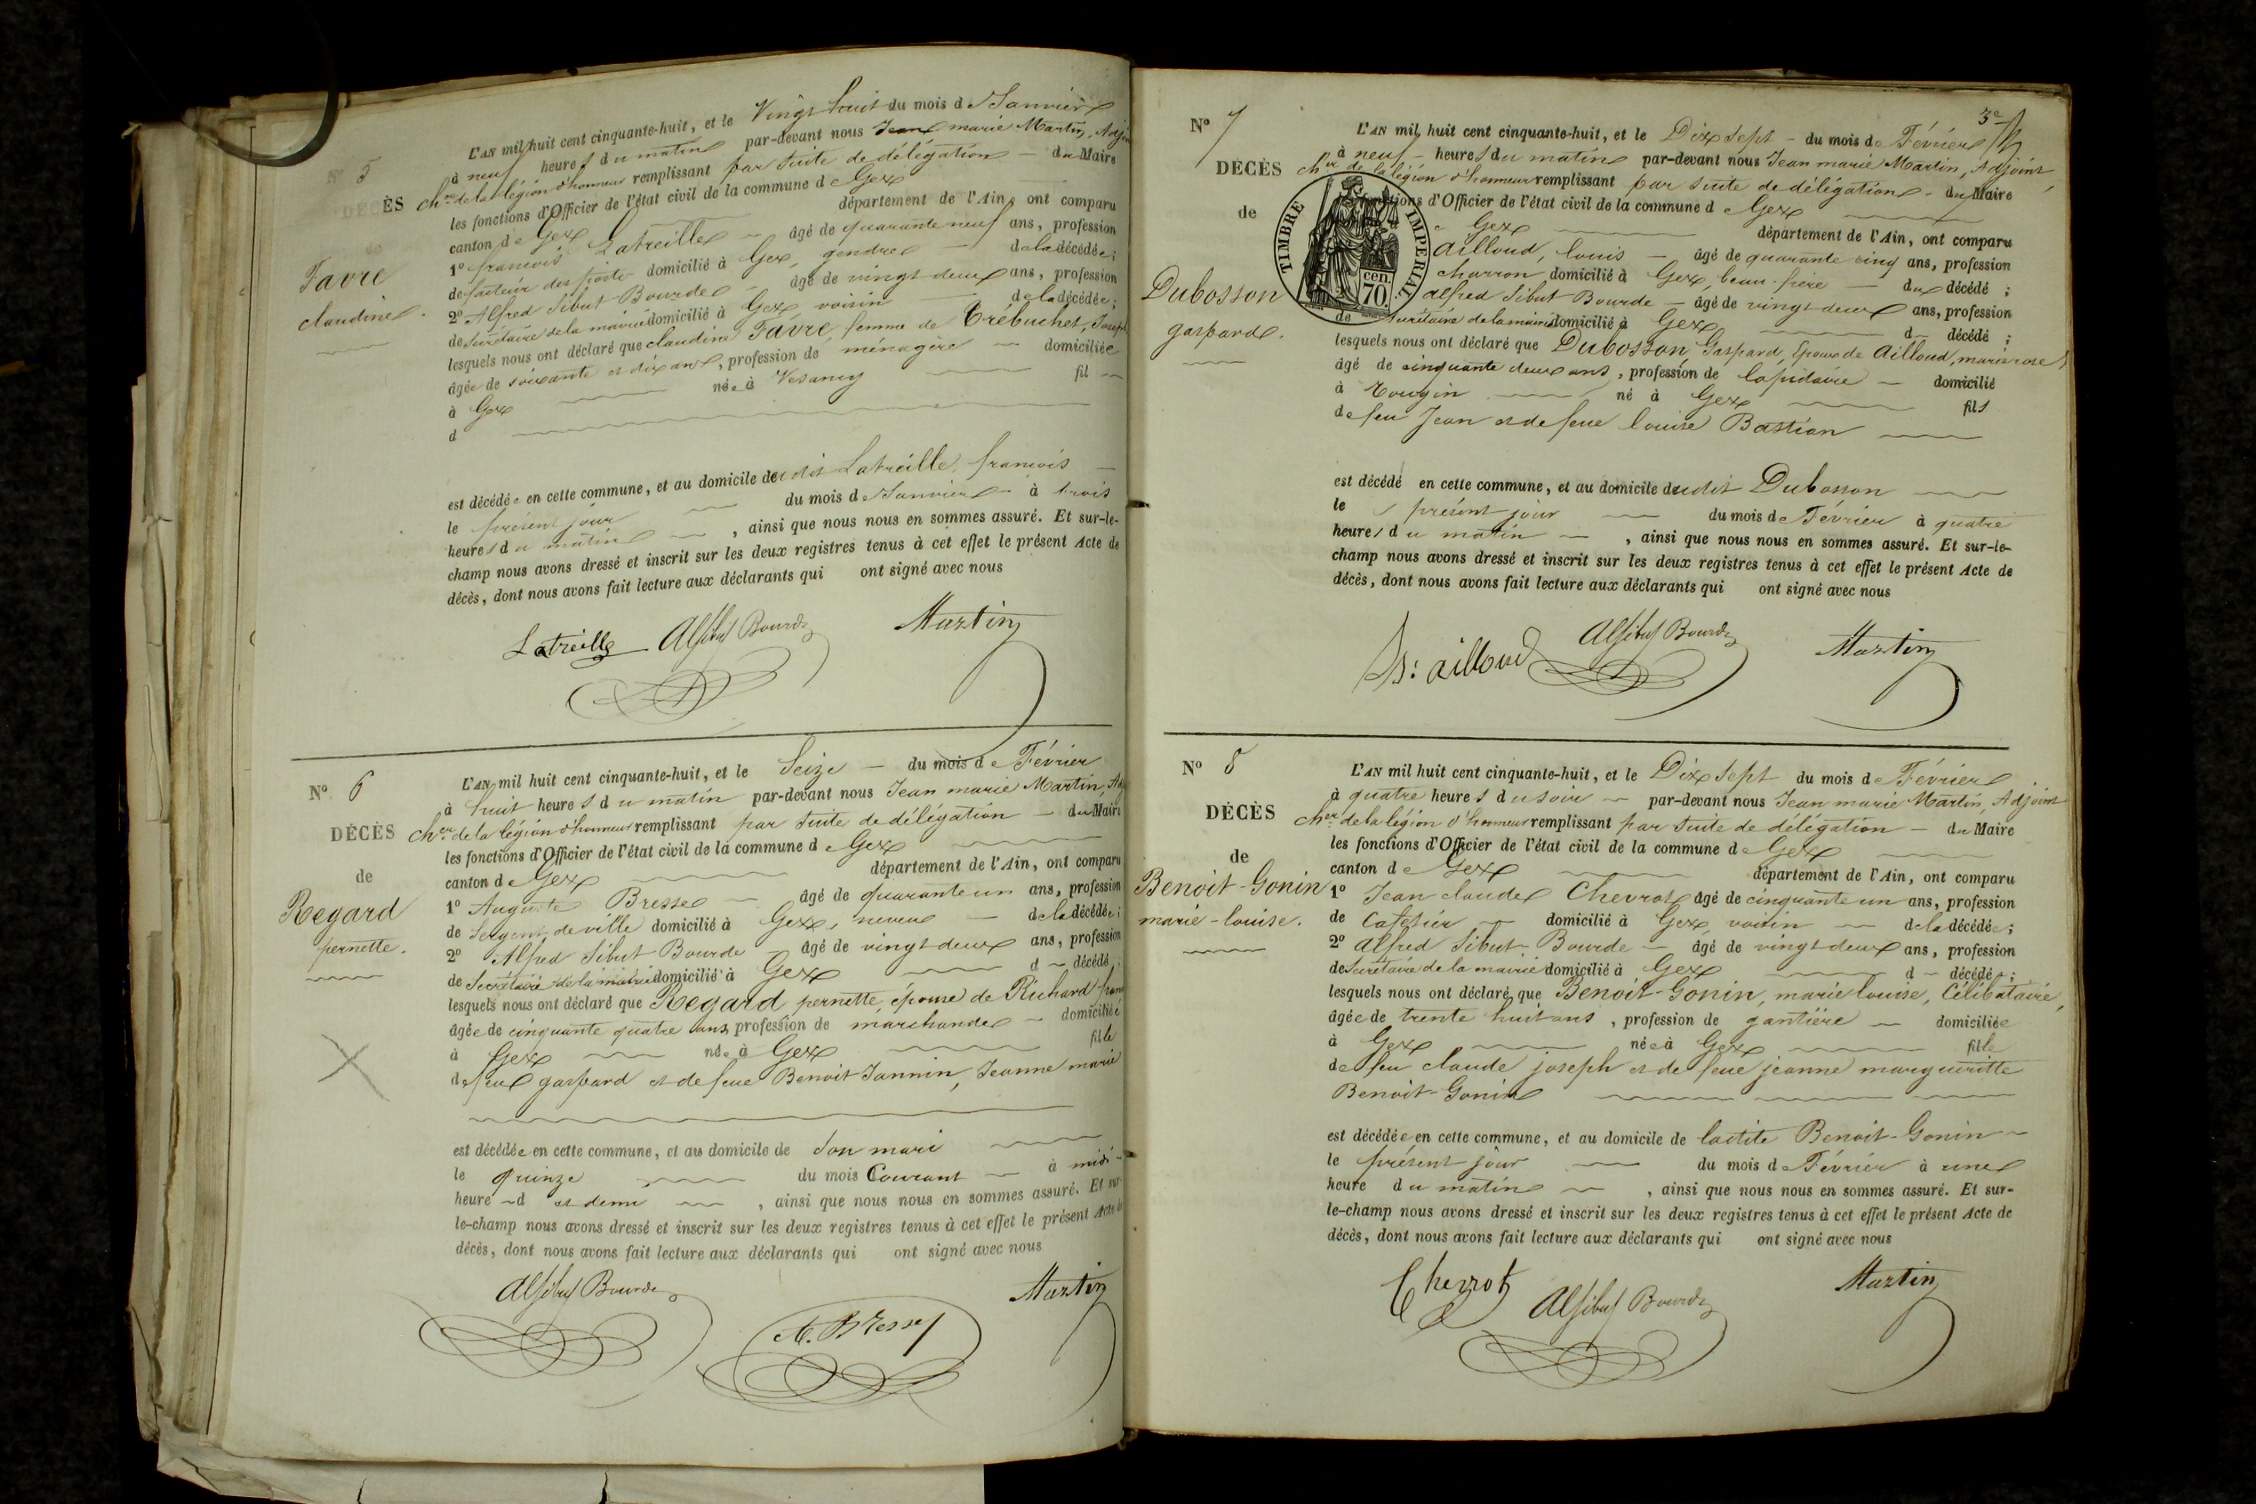 N° 5
DÉCÈS
de
Favre
claudine.
L'AN mil huit cent cinquante-huit, et le Vingt huit du mois de Janvier
à neuf heures du matin par-devant nous Jean marie Martin, Adjoint
cher de la légion d'honneur remplissant par suite de délégation — du Maire
les fonctions d'Officier de l'état civil de la commune de Gex
canton de Gex département de l'Ain, ont comparu
1° francois Latreille — âgé de quarante neuf ans, profession
de facteur des poste domicilié à Gex, gendre — de la décédée;
2° Alfred Sibut Bourde — âgé de vingt deux ans, profession
de Secrétaire de la mairie domicilié à Gex voisin de la décédée;
lesquels nous ont déclaré que claudine Favre, femme de Trébuchet, Joseph
âgée de soixante et dix ans, profession de ménagère — domiciliée
à Gex née à Vesancy fil
d
est décédée en cette commune, et au domicile dudit Latreille, francois —
le présent jour du mois de Janvier à trois
heures du matin — , ainsi que nous nous en sommes assuré. Et sur-le-
champ nous avons dressé et inscrit sur les deux registres tenus à cet effet le présent Acte de
décès, dont nous avons fait lecture aux déclarants qui ont signé avec nous
Latreille Alf Sibut Bourde Martin
N° 6
DÉCÈS
de
Regard
pernette.
L'AN mil huit cent cinquante-huit, et le Seize — du mois de Février
à huit heures du matin par-devant nous Jean marie Martin, Adj
cher de la légion d'honneur remplissant par suite de délégation — du Maire
les fonctions d'Officier de l'état civil de la commune de Gex
canton de Gex département de l'Ain, ont comparu
1° Auguste Bresse — âgé de quarante un ans, profession
de Sergent de ville domicilié à Gex, neveu — de la décédée;
2° Alfred Sibut Bourde — âgé de vingt deux ans, profession
de Secrétaire de la mairie domicilié à Gex d — décédé;
lesquels nous ont déclaré que Regard pernette, épouse de Richard
âgée de cinquante quatre ans profession de marchande — domiciliée
à Gex née à Gex fille
de feu gaspard et de feue Benoit Jannin, Jeanne marie
est décédée en cette commune, et au domicile de son mari
le quinze du mois Courant — à midi
heure d et demi , ainsi que nous nous en sommes assuré. Et sur-
le-champ nous avons dressé et inscrit sur les deux registres tenus à cet effet le présent Acte de
décès, dont nous avons fait lecture aux déclarants qui ont signé avec nous
Alf Sibut Bourde A. Bresse Martin
3e
N° 7
DÉCÈS
de
Dubosson
gaspard.
TIMBRE IMPÉRIAL
70 cen.
L'AN mil huit cent cinquante-huit, et le Dix Sept — du mois de Février
à neuf — heures du matin par-devant nous Jean marie Martin, Adjoint,
cher de la légion d'honneur remplissant par suite de délégation — du Maire
fonctions d'Officier de l'état civil de la commune de Gex
Gex département de l'Ain, ont comparu
Ailloud, louis — âgé de quarante cinq ans, profession
charron domicilié à Gex, beau-frère — du décédé;
alfred Sibut Bourde — âgé de vingt deux ans, profession
de Secrétaire de la mairie domicilié à Gex d décédé;
lesquels nous ont déclaré que Dubosson, Gaspard, Epoux de Ailloud, marie rose
âgé de cinquante deux ans, profession de lapidaire — domicilié
à Tougin né à Gex fils
de feu Jean et de feue louise Bastian
est décédé en cette commune, et au domicile dudit Dubosson
le présent jour du mois de Février à quatre
heures du matin — , ainsi que nous nous en sommes assuré. Et sur-le-
champ nous avons dressé et inscrit sur les deux registres tenus à cet effet le présent Acte de
décès, dont nous avons fait lecture aux déclarants qui ont signé avec nous
ailloud Alf Sibut Bourde Martin
N° 8
DÉCÈS
de
Benoit-Gonin
marie-louise.
L'AN mil huit cent cinquante-huit, et le Dix Sept du mois de Février
à quatre heures du soir — par-devant nous Jean marie Martin, Adjoint
cher de la légion d'honneur remplissant par suite de délégation — du Maire
les fonctions d'Officier de l'état civil de la commune de Gex
canton de Gex département de l'Ain, ont comparu
1° Jean claude Chevrot âgé de cinquante un ans, profession
de Cafetier — domicilié à Gex, voisin — de la décédée;
2° alfred Sibut-Bourde — âgé de vingt deux ans, profession
de Secrétaire de la mairie domicilié à Gex d — décédé;
lesquels nous ont déclaré que Benoit-Gonin, marie louise, Célibataire,
âgée de trente huit ans, profession de gantière — domiciliée
à Gex née à Gex fille
de feu claude joseph et de feue jeanne margueritte
Benoit-Gonin
est décédée en cette commune, et au domicile de ladite Benoit-Gonin
le présent jour du mois de Février à une
heure du matin — , ainsi que nous nous en sommes assuré. Et sur-
le-champ nous avons dressé et inscrit sur les deux registres tenus à cet effet le présent Acte de
décès, dont nous avons fait lecture aux déclarants qui ont signé avec nous
Chevrot Alf Sibut Bourde Martin